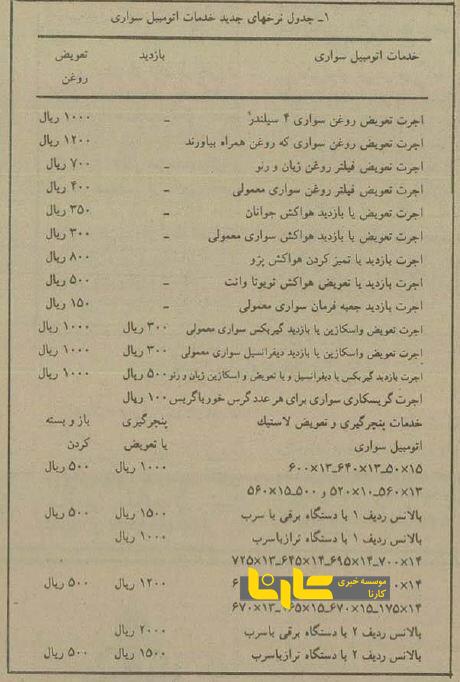 ۱ــ جدول نرخهای جدید خدمات اتومبیل سواری
خدمات اتومبیل سواری بازدید تعویض
روغن
اجرت تعویض روغن سواری ۴ سیلندر – ۱۰۰۰ ریال
اجرت تعویض روغن سواری که روغن همراه بیاورند ۱۲۰۰ ریال
اجرت تعویض فیلتر روغن ژیان و رنو – ۷۰۰ ریال
اجرت تعویض فیلتر روغن سواری معمولی – ۴۰۰ ریال
اجرت تعویض یا بازدید هواکش جوانان – ۳۵۰ ریال
اجرت تعویض یا بازدید هواکش سواری معمولی – ۳۰۰ ریال
اجرت بازدید یا تمیز کردن هواکش پژو ۸۰۰ ریال
اجرت بازدید یا تعویض هواکش تویوتا وانت – ۵۰۰ ریال
اجرت بازدید جعبه فرمان سواری معمولی – ۱۵۰ ریال
اجرت تعویض واسکازین یا بازدید گیربکس سواری معمولی ۳۰۰ ریال ۱۰۰۰ ریال
اجرت تعویض واسکازین یا بازدید دیفرانسیل سواری معمولی ۳۰۰ ریال ۱۰۰۰ ریال
اجرت بازدید گیربکس یا دیفرانسیل و یا تعویض و اسکازین ژیان و رنو ۵۰۰ ریال ۱۰۰۰ ریال
اجرت گریسکاری سواری برای هر عدد گرس خور یا گریس ۱۰۰ ریال
خدمات پنچرگیری و تعویض لاستیک پنچرگیری باز و بسته
اتومبیل سواری یا تعویض کردن
۶۰۰×۱۳ــ۶۴۰×۱۳ــ۵۰×۱۵ ۱۰۰۰ ریال ۵۰۰ ریال
۵۶۰×۱۵ــ۵۰۰ و ۵۲۰×۱۰ــ۵۶۰×۱۳
بالانس ردیف ۱ با دستگاه برقی با سرب ۱۵۰۰ ریال ۵۰۰ ریال
بالانس ردیف ۱ با دستگاه ترازباسرب ۱۰۰۰ ریال
۷۲۵×۱۳ــ۶۴۵×۱۴ــ۶۹۵×۱۴ــ۷۰۰×۱۴
۱۲۰۰ ریال ۵۰۰ ریال
موسسه خبری
کارنا
کارنا
بالانس ردیف ۲ با دستگاه برقی باسرب ۲۰۰۰ ریال
بالانس ردیف ۲ با دستگاه ترازباسرب ۱۵۰۰ ریال ۵۰۰ ریال